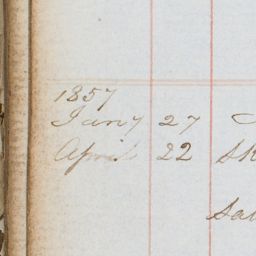 1857
Jany 27
April 22